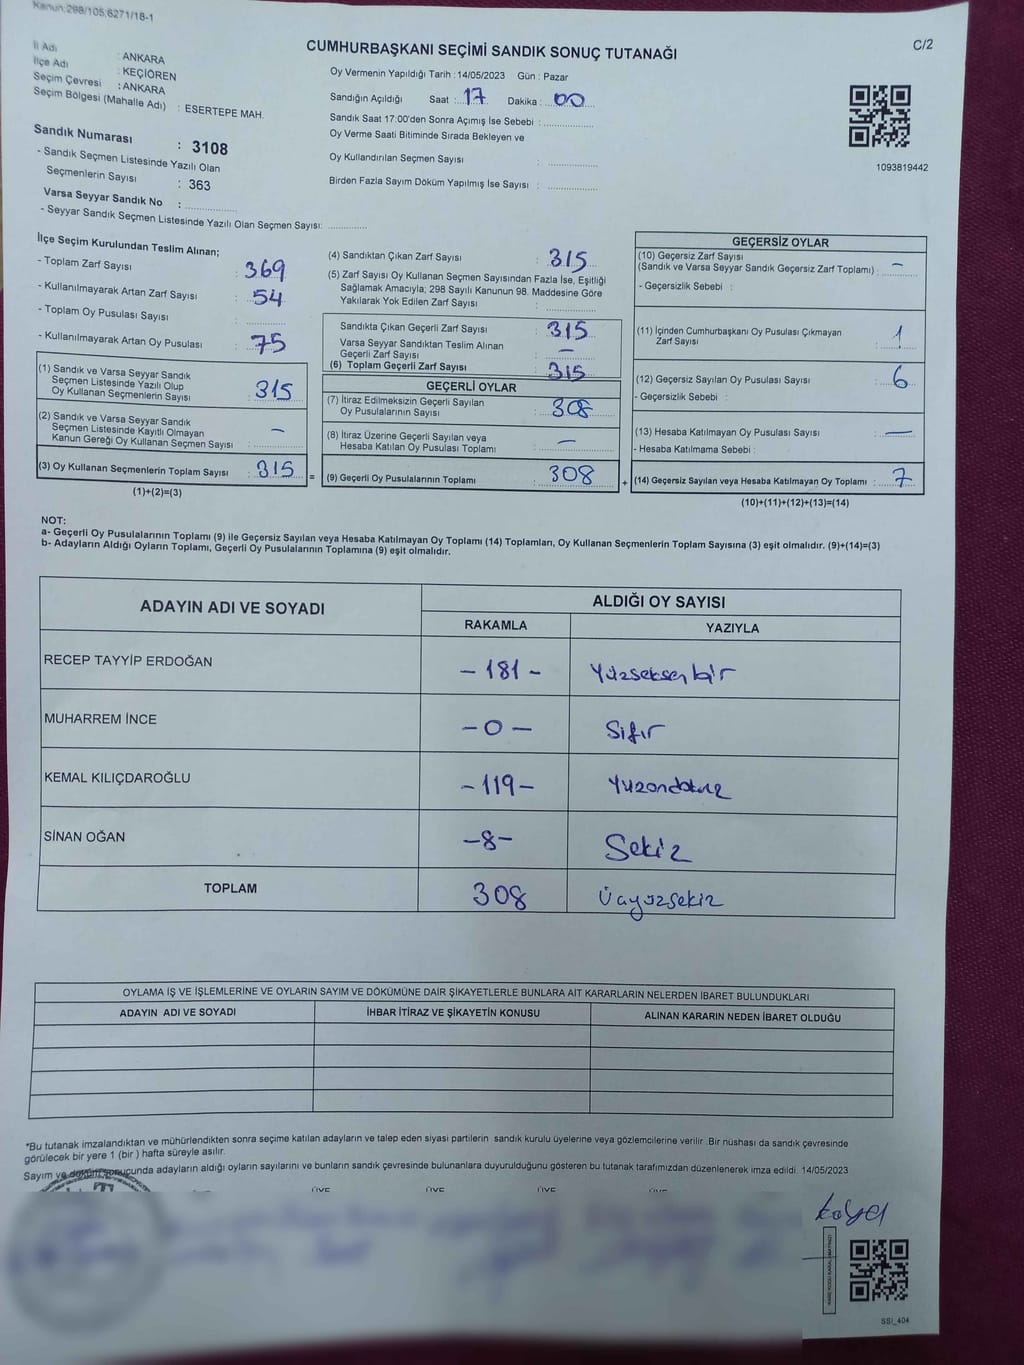 Kanun:298/105,6271/18-1
C/2
CUMHURBAŞKANI SEÇİMİ SANDIK SONUÇ TUTANAĞI
İl Adı : ANKARA
İlçe Adı : KEÇİÖREN
Seçim Çevresi : ANKARA
Seçim Bölgesi (Mahalle Adı) : ESERTEPE MAH.
Oy Vermenin Yapıldığı Tarih : 14/05/2023 Gün : Pazar
Sandığın Açıldığı Saat : 17 Dakika : 00
Sandık Saat 17:00'den Sonra Açımış İse Sebebi :
Oy Verme Saati Bitiminde Sırada Bekleyen ve
Oy Kullandırılan Seçmen Sayısı :
Birden Fazla Sayım Döküm Yapılmış İse Sayısı :
1093819442
Sandık Numarası : 3108
- Sandık Seçmen Listesinde Yazılı Olan
Seçmenlerin Sayısı : 363
Varsa Seyyar Sandık No :
- Seyyar Sandık Seçmen Listesinde Yazılı Olan Seçmen Sayısı:
İlçe Seçim Kurulundan Teslim Alınan;
- Toplam Zarf Sayısı : 369
- Kullanılmayarak Artan Zarf Sayısı : 54
- Toplam Oy Pusulası Sayısı :
- Kullanılmayarak Artan Oy Pusulası : 75
(1) Sandık ve Varsa Seyyar Sandık
Seçmen Listesinde Yazılı Olup
Oy Kullanan Seçmenlerin Sayısı : 315
(2) Sandık ve Varsa Seyyar Sandık
Seçmen Listesinde Kayıtlı Olmayan
Kanun Gereği Oy Kullanan Seçmen Sayısı : –
(3) Oy Kullanan Seçmenlerin Toplam Sayısı : 315 =
(1)+(2)=(3)
(4) Sandıktan Çıkan Zarf Sayısı : 315
(5) Zarf Sayısı Oy Kullanan Seçmen Sayısından Fazla İse, Eşitliği
Sağlamak Amacıyla; 298 Sayılı Kanunun 98. Maddesine Göre
Yakılarak Yok Edilen Zarf Sayısı :
Sandıkta Çıkan Geçerli Zarf Sayısı : 315
Varsa Seyyar Sandıktan Teslim Alınan
Geçerli Zarf Sayısı : –
(6) Toplam Geçerli Zarf Sayısı : 315
GEÇERLİ OYLAR
(7) İtiraz Edilmeksizin Geçerli Sayılan
Oy Pusulalarının Sayısı : 308
(8) İtiraz Üzerine Geçerli Sayılan veya
Hesaba Katılan Oy Pusulası Toplamı : –
(9) Geçerli Oy Pusulalarının Toplamı : 308 +
GEÇERSİZ OYLAR
(10) Geçersiz Zarf Sayısı
(Sandık ve Varsa Seyyar Sandık Geçersiz Zarf Toplamı) : –
- Geçersizlik Sebebi :
(11) İçinden Cumhurbaşkanı Oy Pusulası Çıkmayan
Zarf Sayısı : 1
(12) Geçersiz Sayılan Oy Pusulası Sayısı : 6
- Geçersizlik Sebebi :
(13) Hesaba Katılmayan Oy Pusulası Sayısı : —
- Hesaba Katılmama Sebebi :
(14) Geçersiz Sayılan veya Hesaba Katılmayan Oy Toplamı : 7
(10)+(11)+(12)+(13)=(14)
NOT:
a- Geçerli Oy Pusulalarının Toplamı (9) ile Geçersiz Sayılan veya Hesaba Katılmayan Oy Toplamı (14) Toplamları, Oy Kullanan Seçmenlerin Toplam Sayısına (3) eşit olmalıdır. (9)+(14)=(3)
b- Adayların Aldığı Oyların Toplamı, Geçerli Oy Pusulalarının Toplamına (9) eşit olmalıdır.
ADAYIN ADI VE SOYADI ALDIĞI OY SAYISI
RAKAMLA YAZIYLA
RECEP TAYYİP ERDOĞAN -181- Yüzseksenbir
MUHARREM İNCE -0- Sıfır
KEMAL KILIÇDAROĞLU -119- Yüzondokuz
SİNAN OĞAN -8- Sekiz
TOPLAM 308 Üçyüzsekiz
OYLAMA İŞ VE İŞLEMLERİNE VE OYLARIN SAYIM VE DÖKÜMÜNE DAİR ŞİKAYETLERLE BUNLARA AİT KARARLARIN NELERDEN İBARET BULUNDUKLARI
ADAYIN ADI VE SOYADI İHBAR İTİRAZ VE ŞİKAYETİN KONUSU ALINAN KARARIN NEDEN İBARET OLDUĞU
*Bu tutanak imzalandıktan ve mühürlendikten sonra seçime katılan adayların ve talep eden siyasi partilerin sandık kurulu üyelerine veya gözlemcilerine verilir .Bir nüshası da sandık çevresinde
görülecek bir yere 1 (bir ) hafta süreyle asılır.
Sayım ve sonucunda adayların aldığı oyların sayılarını ve bunların sandık çevresinde bulunanlara duyurulduğunu gösteren bu tutanak tarafımızdan düzenlenerek imza edildi. 14/05/2023
ÜYE ÜYE ÜYE ÜYE
SSI_404